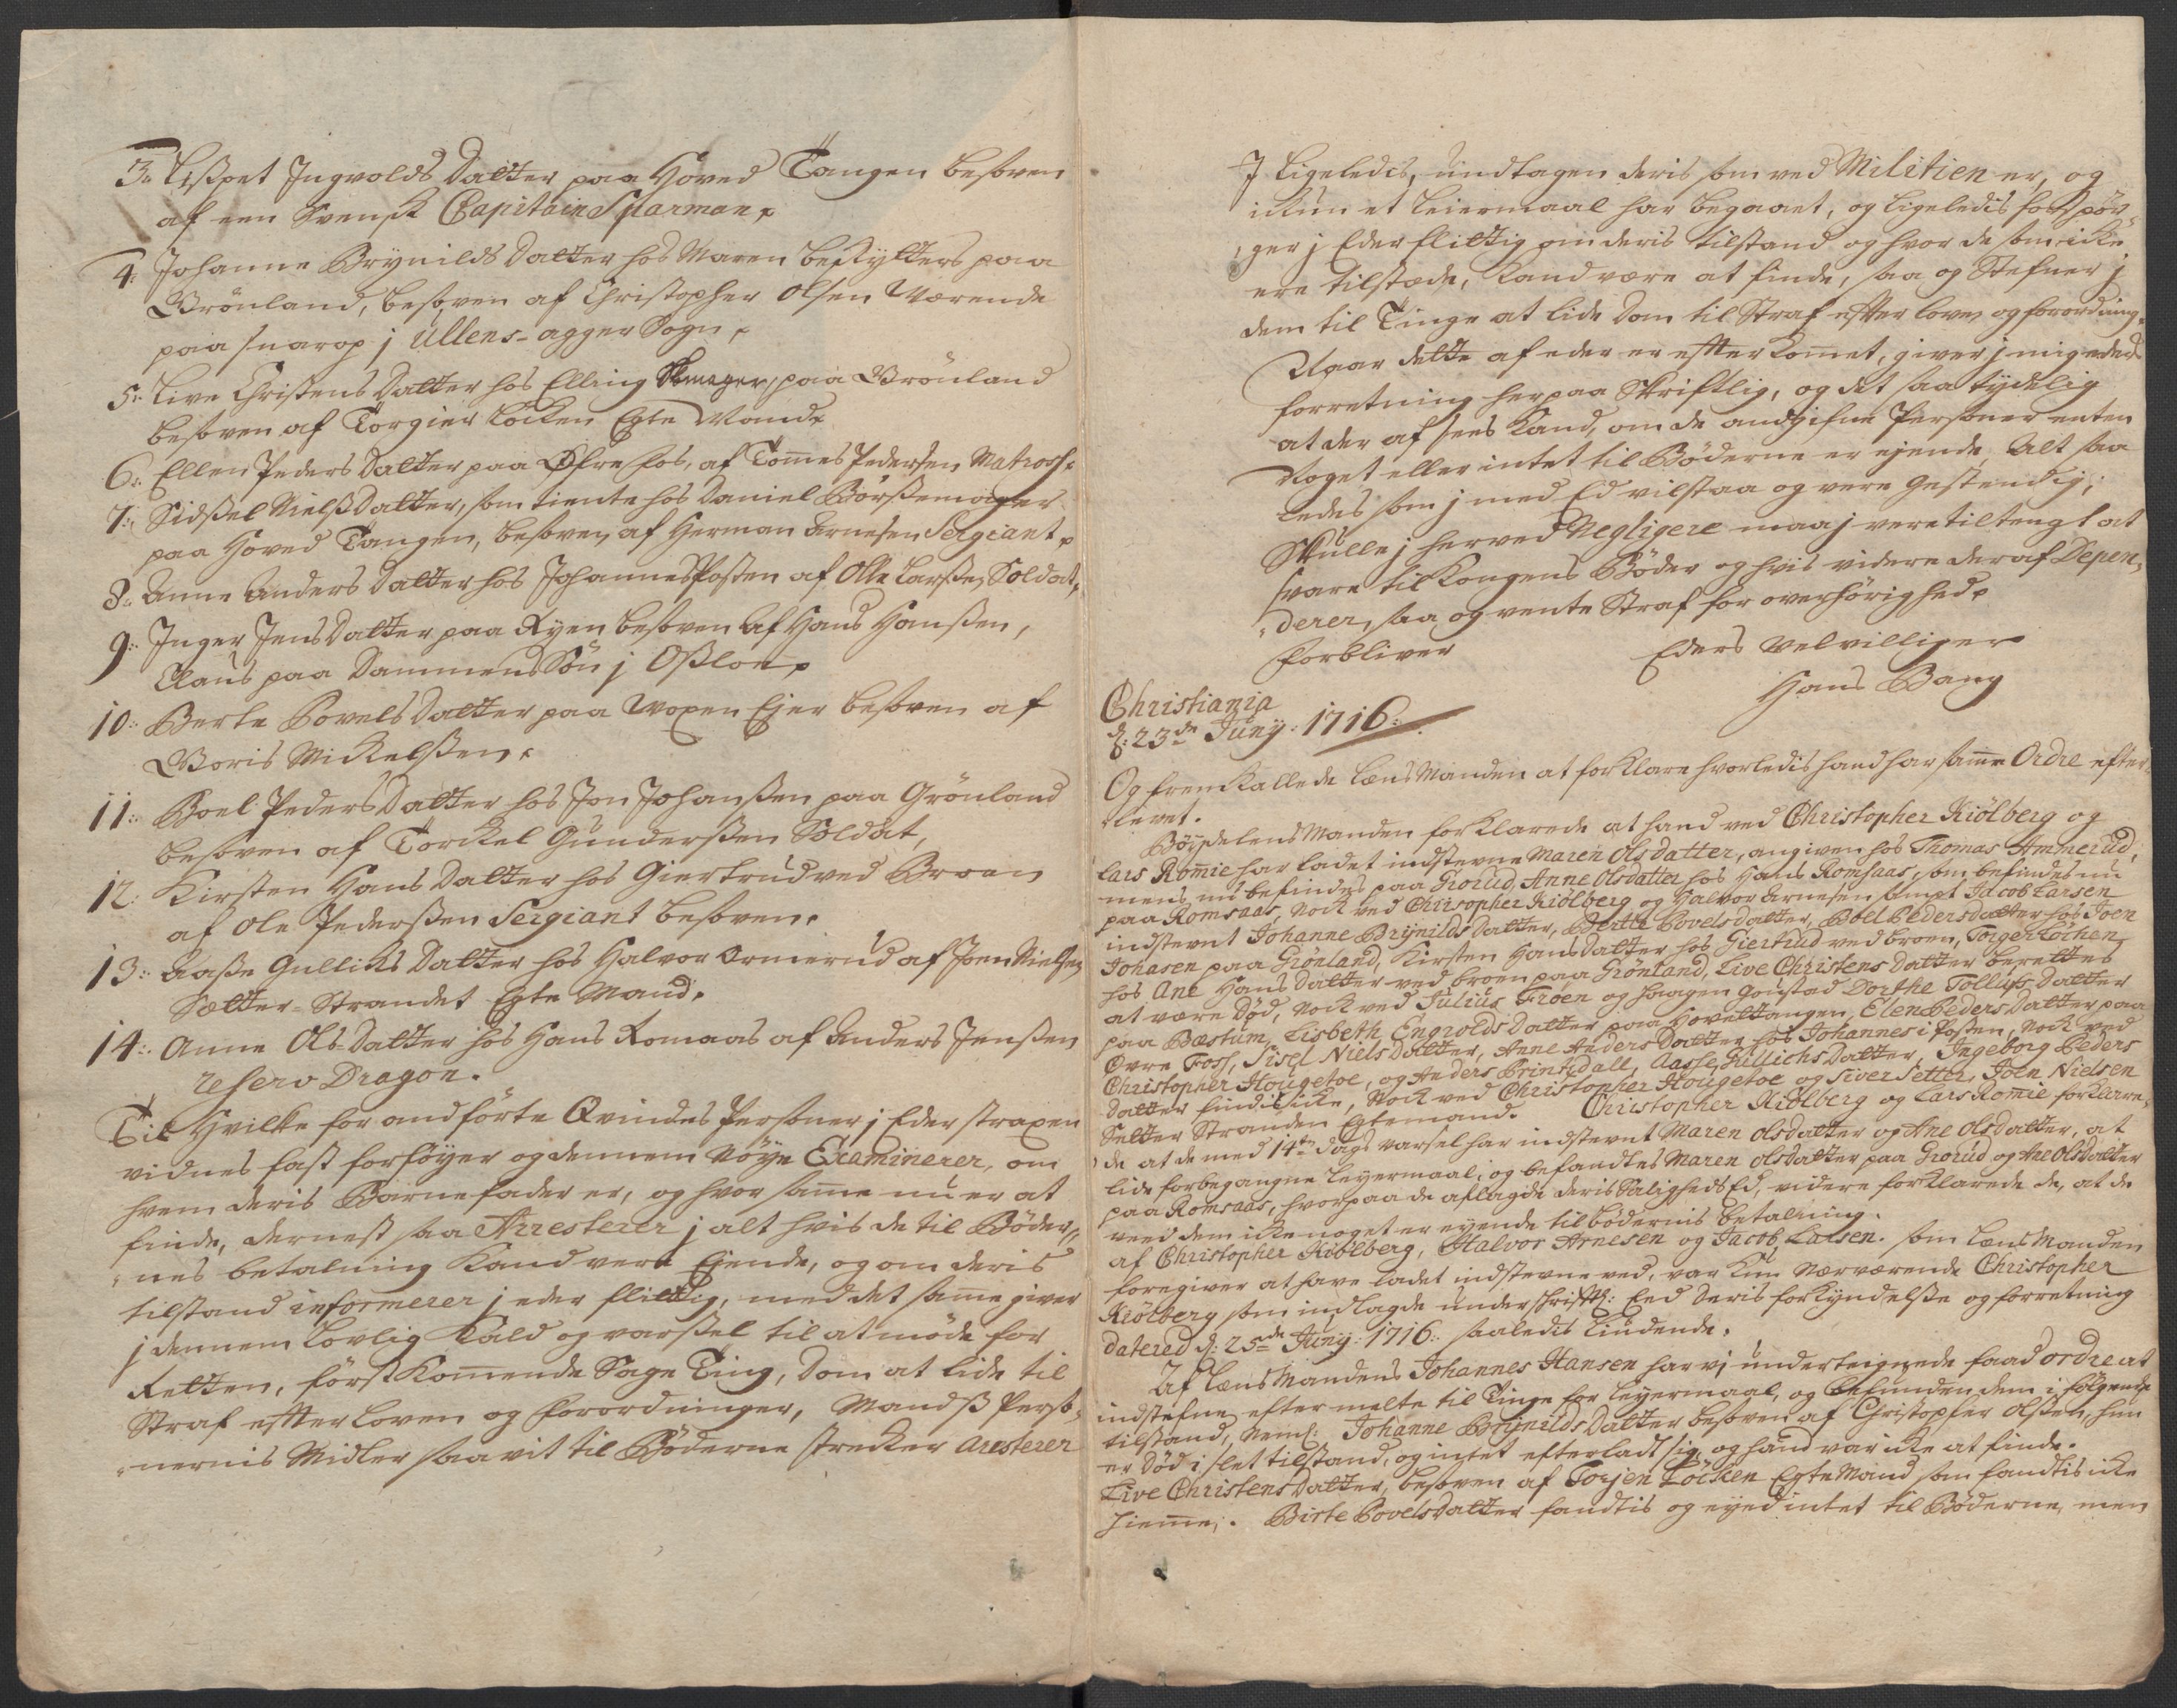 3: Lisspet Ingvolds Datter paa Hoved Tangen besoven
af een Svensk Capitain Sparman,
4: Johanne Brynilds Datter hos Maren paa
Grönland, besoven af Christopher Olsen Værende
paa snarop j Ullens-agger Sogn,
5: Live Christens Datter hos Elling paa Grönland
besoven af Torgier Löcken Egte Mand,
6: Ellen Peders Datter paa Øfre fos, af Tom̄es Pedersen Matross,
7: Sidssel Nielss Datter, som tiente hos Daniel Börssemager
paa Hoved Tangen, besoven af Herman Arnesen Sergiant,
8: Anne Anders Datter hos Johannes Posten af Olle Larssen Soldat,
9: Inger Jens Datter paa Ryen besoven af Hans Hanssen,
Claus paa Dammens Sön j Osloe,
10: Berte Povels Datter paa Woxen Ejer besoven af
Boris Mickelssen,
11: Boel Peders Datter hos Jon Johanssen paa Grönland
besoven af Torckel Gunderssen Soldat,
12: Kirsten Hans Datter hos Giertrud ved Broen
af Ole Pederssen Sergiant besoven,
13: Aasse Gulliks Datter hos Halvor Ormerud af Joen Nielssen
Setter-Strandet Egte Mand,
14: Anne Ols-Datter hos Hans Romaas af Anders Jenssen
reserv Dragon.
Til Hvilke for andförte Qvindes Personer j Eder straxen
vidnes fast forföyer og dennem Nöye Examinerer, om
hvem deris Barnefader er, og hvor sam̄e nu er at
finde, dernest saa Arresterer j alt hvis de til Böder-
nes betalning Kand vere Ejende, og om deris
tilstand informerer j eder flittig, med det sam̄e giver
j dennem Lovlig Kald og varssel til at möde for
Retten, först Kom̄ende Sage Ting, Dom at lide til
Straf effter Loven og forordninger, Mands Perso-
nernis Midler saavit til Böderne strecker Aresterer
J Ligeledis, undtagen deris som ved Militien er, og
ickun et Leiermaal har begaaet, og Ligeledis forspör-
ger j Eder flittig om deris tilstand og hvor de som icke
ere tilstede, Kand være at finde, saa og Stefner j
dem til Tinge at lide Dom til Straf effter loven og forordning,
Naar dette af eder er effterkom̄et, giver j mig eders
forretning herpaa Skriftlig, og det saa tydelig
at der af sees Kand, om de andgifne Personer enten
Noget eller intet til Böderne er ejende, Alt saa
ledes som j med Ed vil staa og vere Gestendig,
Skulle j herved Negligere maa j vere tiltengt at
svare til Kongens Böder og hvis videre deraf Depen-
derer, saa og vente Straf for overhörighed,
forbliver Eders Velvilliger
Hans Bang
Christiania
d: 23de Juny: 1716:
Og fremkallede Lens Manden at forklare hvorledis hand har sam̄e Ordre efter-
levet.
Böyde Lens Manden forklarede at hand ved Christopher Kiölberg og
Lars Rom̄ie har ladet indstevne Maren Olsdatter, angiven hos Thomas Ammerud,
mens nu befindes paa Grorud, Anne Olsdatter hos Hans Romsaas, som befindes nu
paa Romsaas, Nock ved Christopher Kiölberg og Halvor Arnesen sampt Jacob Larsen
indstevnt Johanne Brynilds Datter, Berthe Povelsdatter, Boel Pedersdatter hos Joen
Johasen paa Grönland, Kirsten Hansdatter hos Giertrud ved broen, Torger Löchen
hos Ane Hans Datter ved broen paa Grönland, Live Christens Datter berettes
at være död, Nock ved Julius Froen og Haagen Gousted Dorthe Tollufs Datter
paa Bæstum, Lisbeth Engvolds Datter paa Hovettangen, Elen Peders Datter paa
Övre Foss, Sisel Niels Datter, Anne Anders Datter hos Johannes i Posten, Nock ved
Christopher Hougetoe, og Anders Printzdall, Aasse Gullichs Datter, Ingeborg Peders
Datter findis icke, Nock ved Christopher Hougetoe og Siver Setter, Joen Nielsen
Setter Stranden Egtemand. Christopher Kiölberg og Lars Rom̄ie forklare-
de at de med 14ten dags varsel har indstevnt Maren Olsdatter og Ane Olsdatter, at
lide forbegangne Leyermaal, og befandtes Maren Olsdatter paa Grorud og Ane Olsdatter
paa Romsaas, hvorpaa de aflagde deris Saligheds Ed, videre forklarede de, at de
veed dem icke noget er eyende til bödernis betalning.
af Christopher Kiölberg, Halvor Arnesen og Jacob Larsen. som Lens Manden
foregiver at have ladet indstevne ved, var kun Nærværende Christopher
Kiölberg som indlagde under schriftl: Eed deris forkyndelse og forretning
datered d: 25de Juny: 1716: saaledis Liudende,
Af Lens Mandens Johannes Hansen har vj underteignede faad ordre at
indstefne efter melte til Tinge for Leyermaal, og befunden dem i fölgende
tilstand, Neml: Johanne Brynilds Datter besoven af Christopher Olssen, hun
er död i slet tilstand, og intet efterladt sig, og hand var icke at finde.
Live Christens Datter, besoven af Torjen Löcken Egte Mand som fandtis icke
hiemme,. Birte Povelsdatter fandtis og eyed intet til Böderne, men